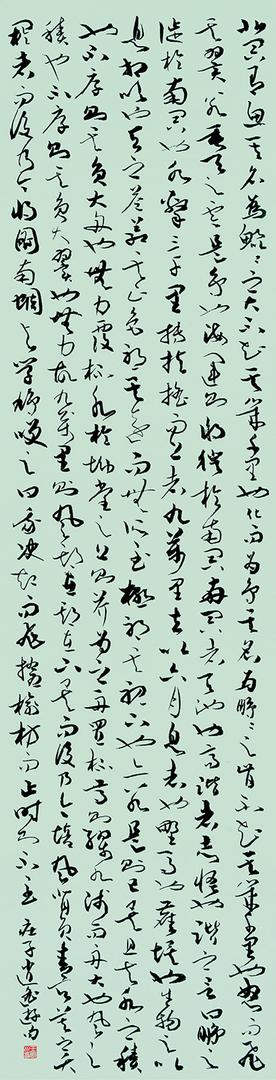 北冥有魚其名為鯤鯤之大不知其幾千里也化而為鳥其名為鵬鵬之背不知其幾千里也怒而飛
其翼若垂天之雲是鳥也海運則將徙於南冥南冥者天池也齊諧者志怪也諧之言曰鵬之
徙於南冥也水擊三千里摶扶搖而上者九萬里去以六月息者也野馬也塵埃也生物之以
息相吹也天之蒼蒼其正色邪其遠而無所至極邪其視下也亦若是則已矣且夫水之積
也不厚則其負大舟也無力覆杯水於坳堂之上則芥為之舟置杯焉則膠水淺而舟大也風之
積也不厚則其負大翼也無力故九萬里則風斯在下矣而後乃今培風背負青天而莫之夭
閼者而後乃今將圖南蜩與學鳩笑之曰我決起而飛搶榆枋而止時則不至 莊子逍遙遊句